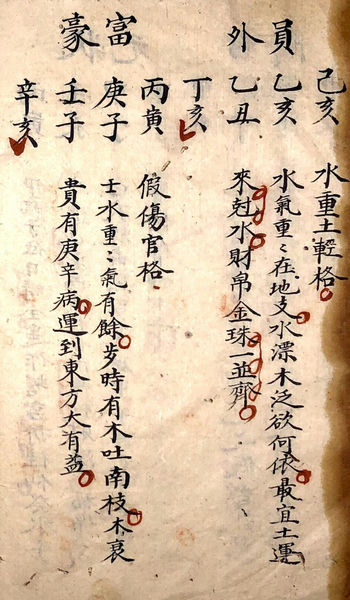 己亥 水重土輕格
員 乙亥 水氣重〻在地支水漂木泛欲何依最宜土運
外 乙丑 來尅水財帛金珠一並齊
丁亥
丙寅 假傷官格
富 庚子 壬水重〻氣有餘步時有木吐南枝木衰
豪 壬子 貴有庚辛病運到東方大有益
辛亥